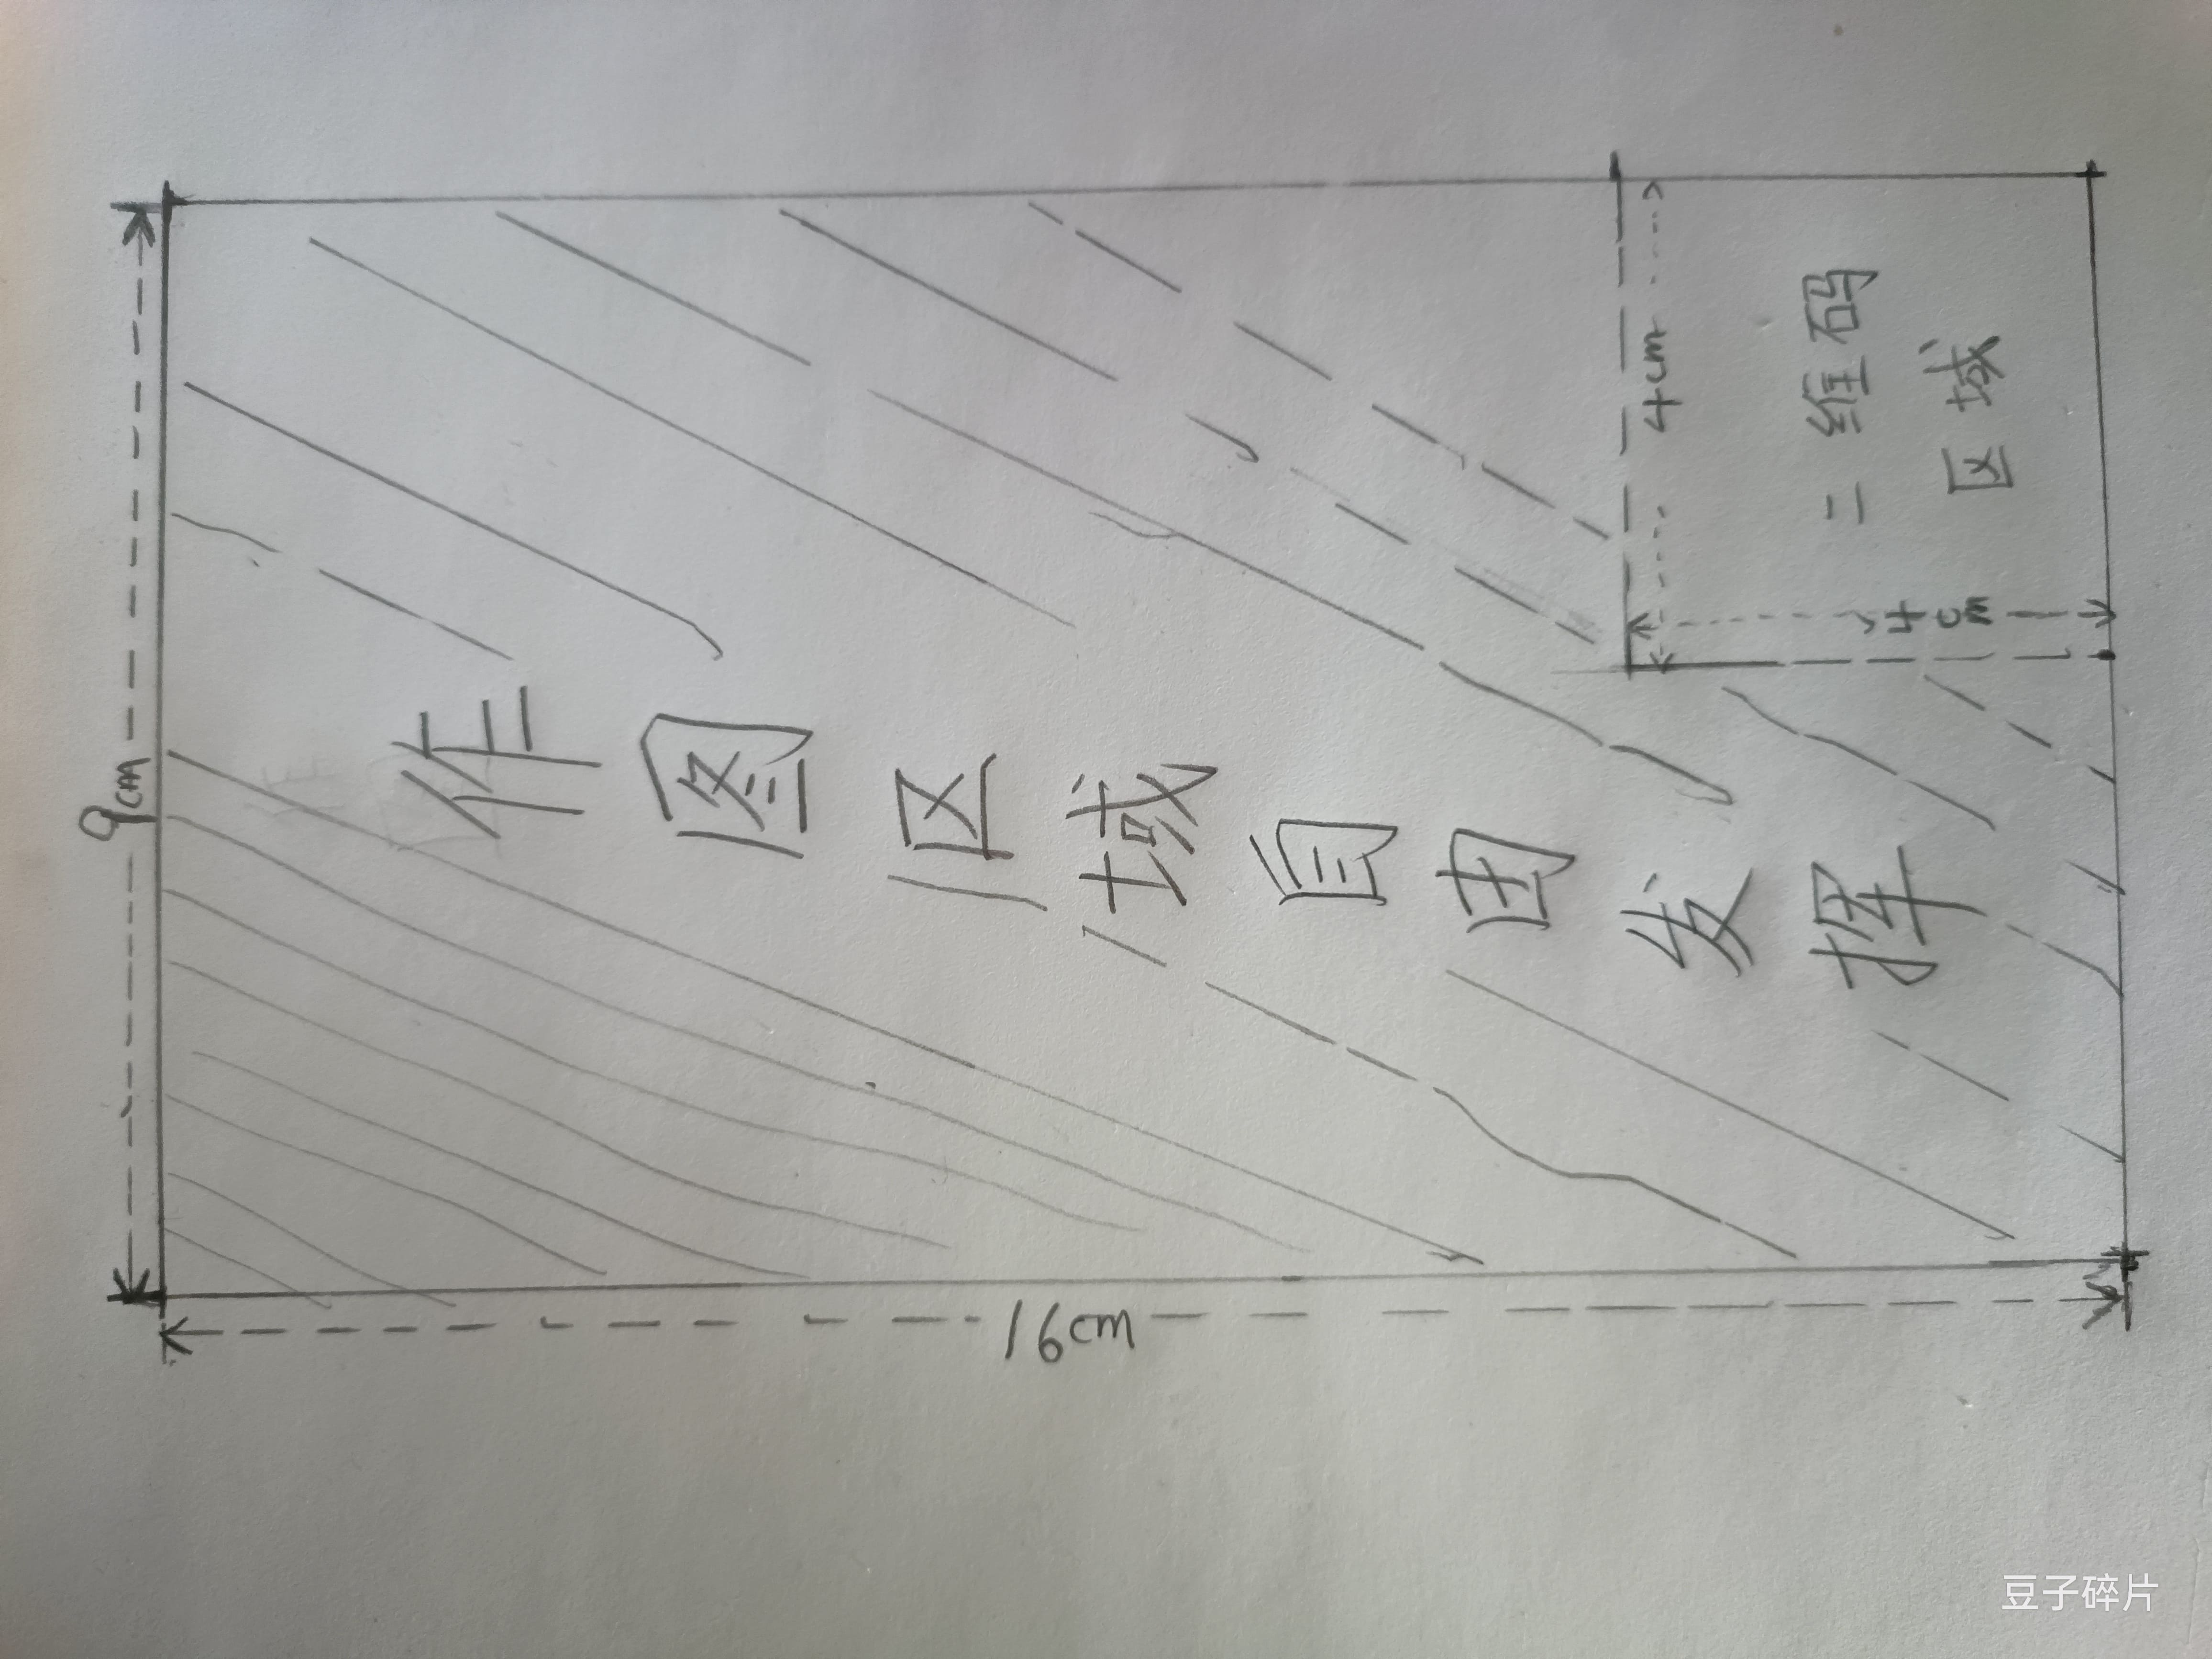 9cm
16cm
作图区域自由发挥
4cm
4cm
二维码
区域
豆子碎片